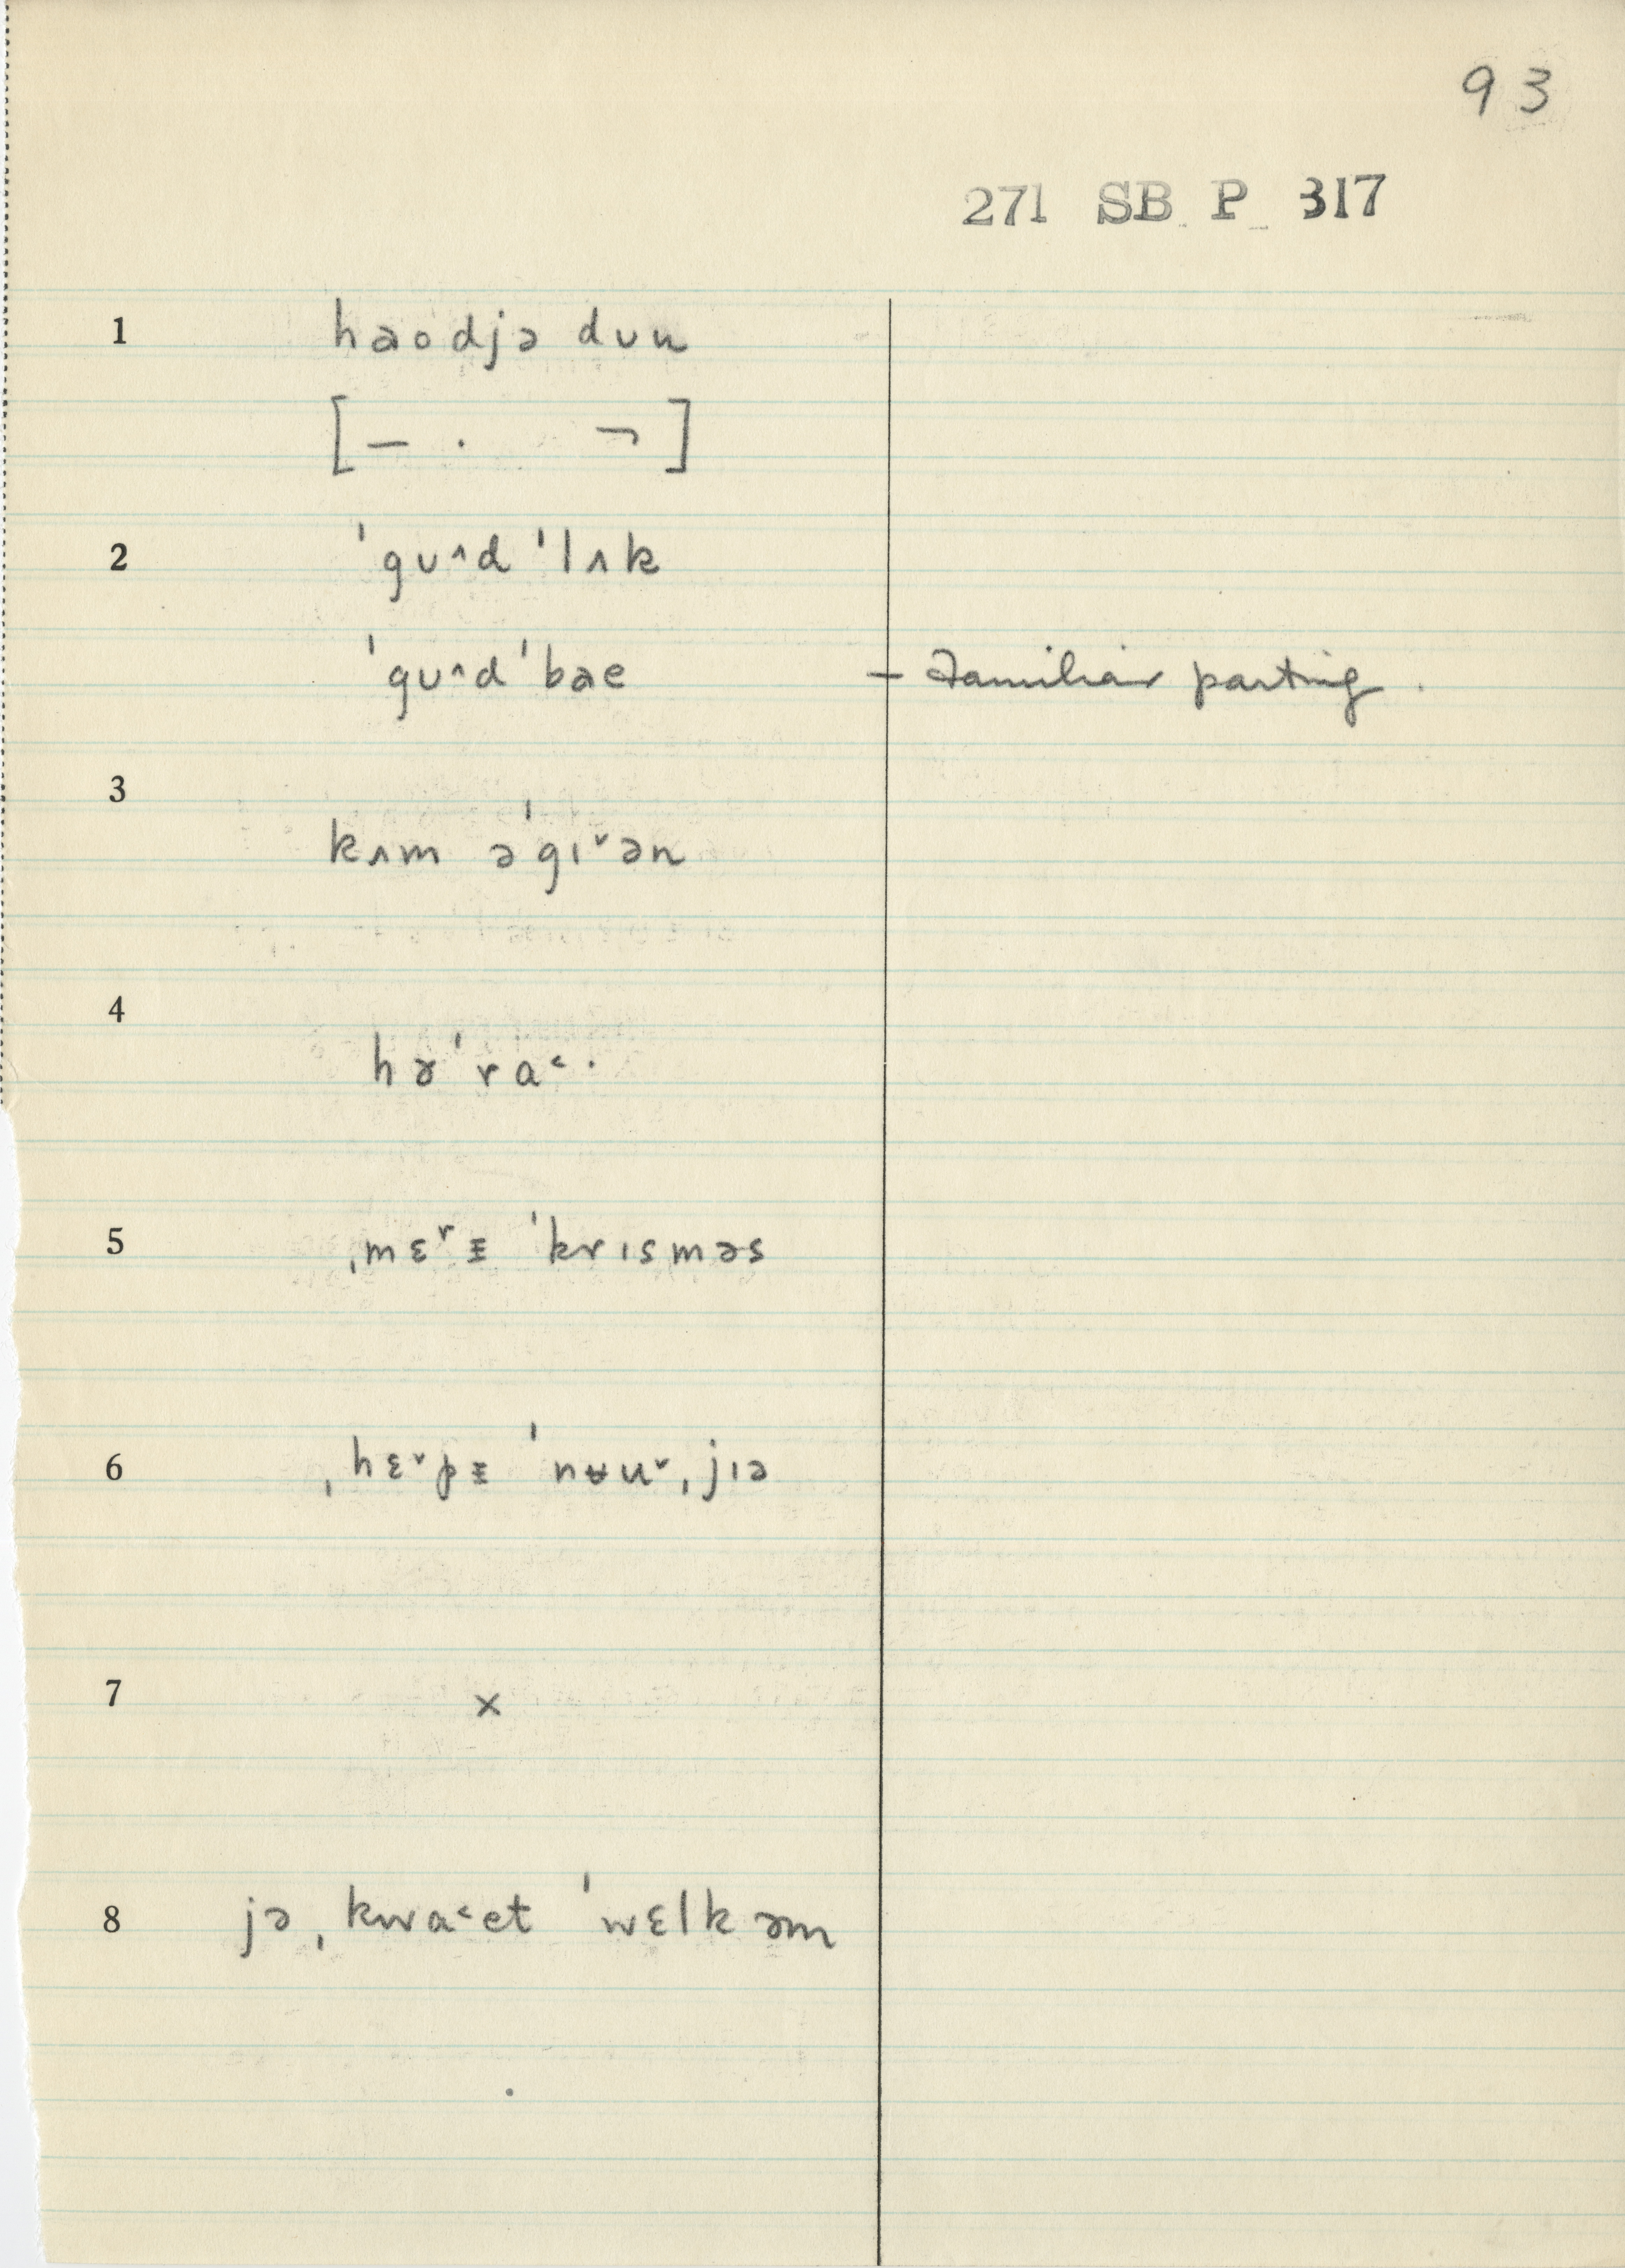 93
271 SB P 317
1 haodjə dʊu
[— · ¬]
2 ˈgʊ^d ˈlʌk
ˈgʊ^d ˈbae — Familiar parting.
3
kʌm əˈgɪ˅ən
4
hɚˈra˂·
5 ˌmɛʳɪ ˈkrɪsməs
6 ˌhɛ˅pɪ ˈnʉu˅ˌjɪə
7 ×
8 jə ˌkwa˂et ˈwɛlkəm